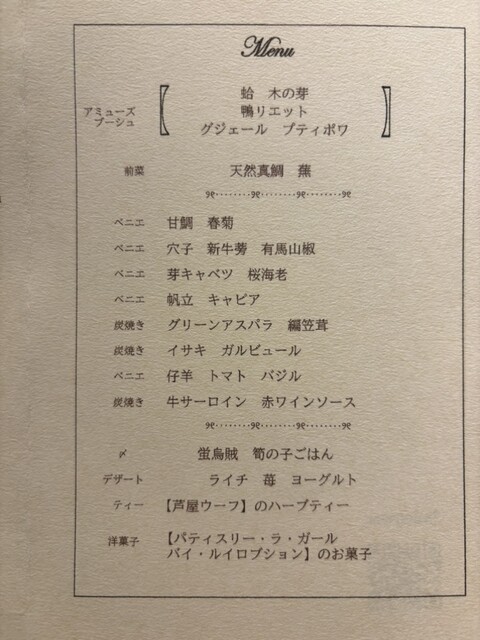 Menu
アミューズ
ブーシュ
蛤 木の芽
鴨リエット
グジェール プティポワ
前菜 天然真鯛 蕪
ベニエ 甘鯛 春菊
ベニエ 穴子 新牛蒡 有馬山椒
ベニエ 芽キャベツ 桜海老
ベニエ 帆立 キャビア
炭焼き グリーンアスパラ 編笠茸
炭焼き イサキ ガルビュール
ベニエ 仔羊 トマト バジル
炭焼き 牛サーロイン 赤ワインソース
〆 蛍烏賊 筍の子ごはん
デザート ライチ 苺 ヨーグルト
ティー 【芦屋ウーフ】のハーブティー
洋菓子 【パティスリー・ラ・ガール
バイ・ルイロブション】のお菓子